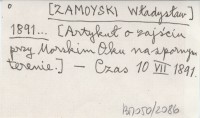 [ZAMOYSKI Władysław]
1891... [Artykuł o zajściu
przy Morskim Oku na spornym
terenie.] — Czas 10 VII 1891.